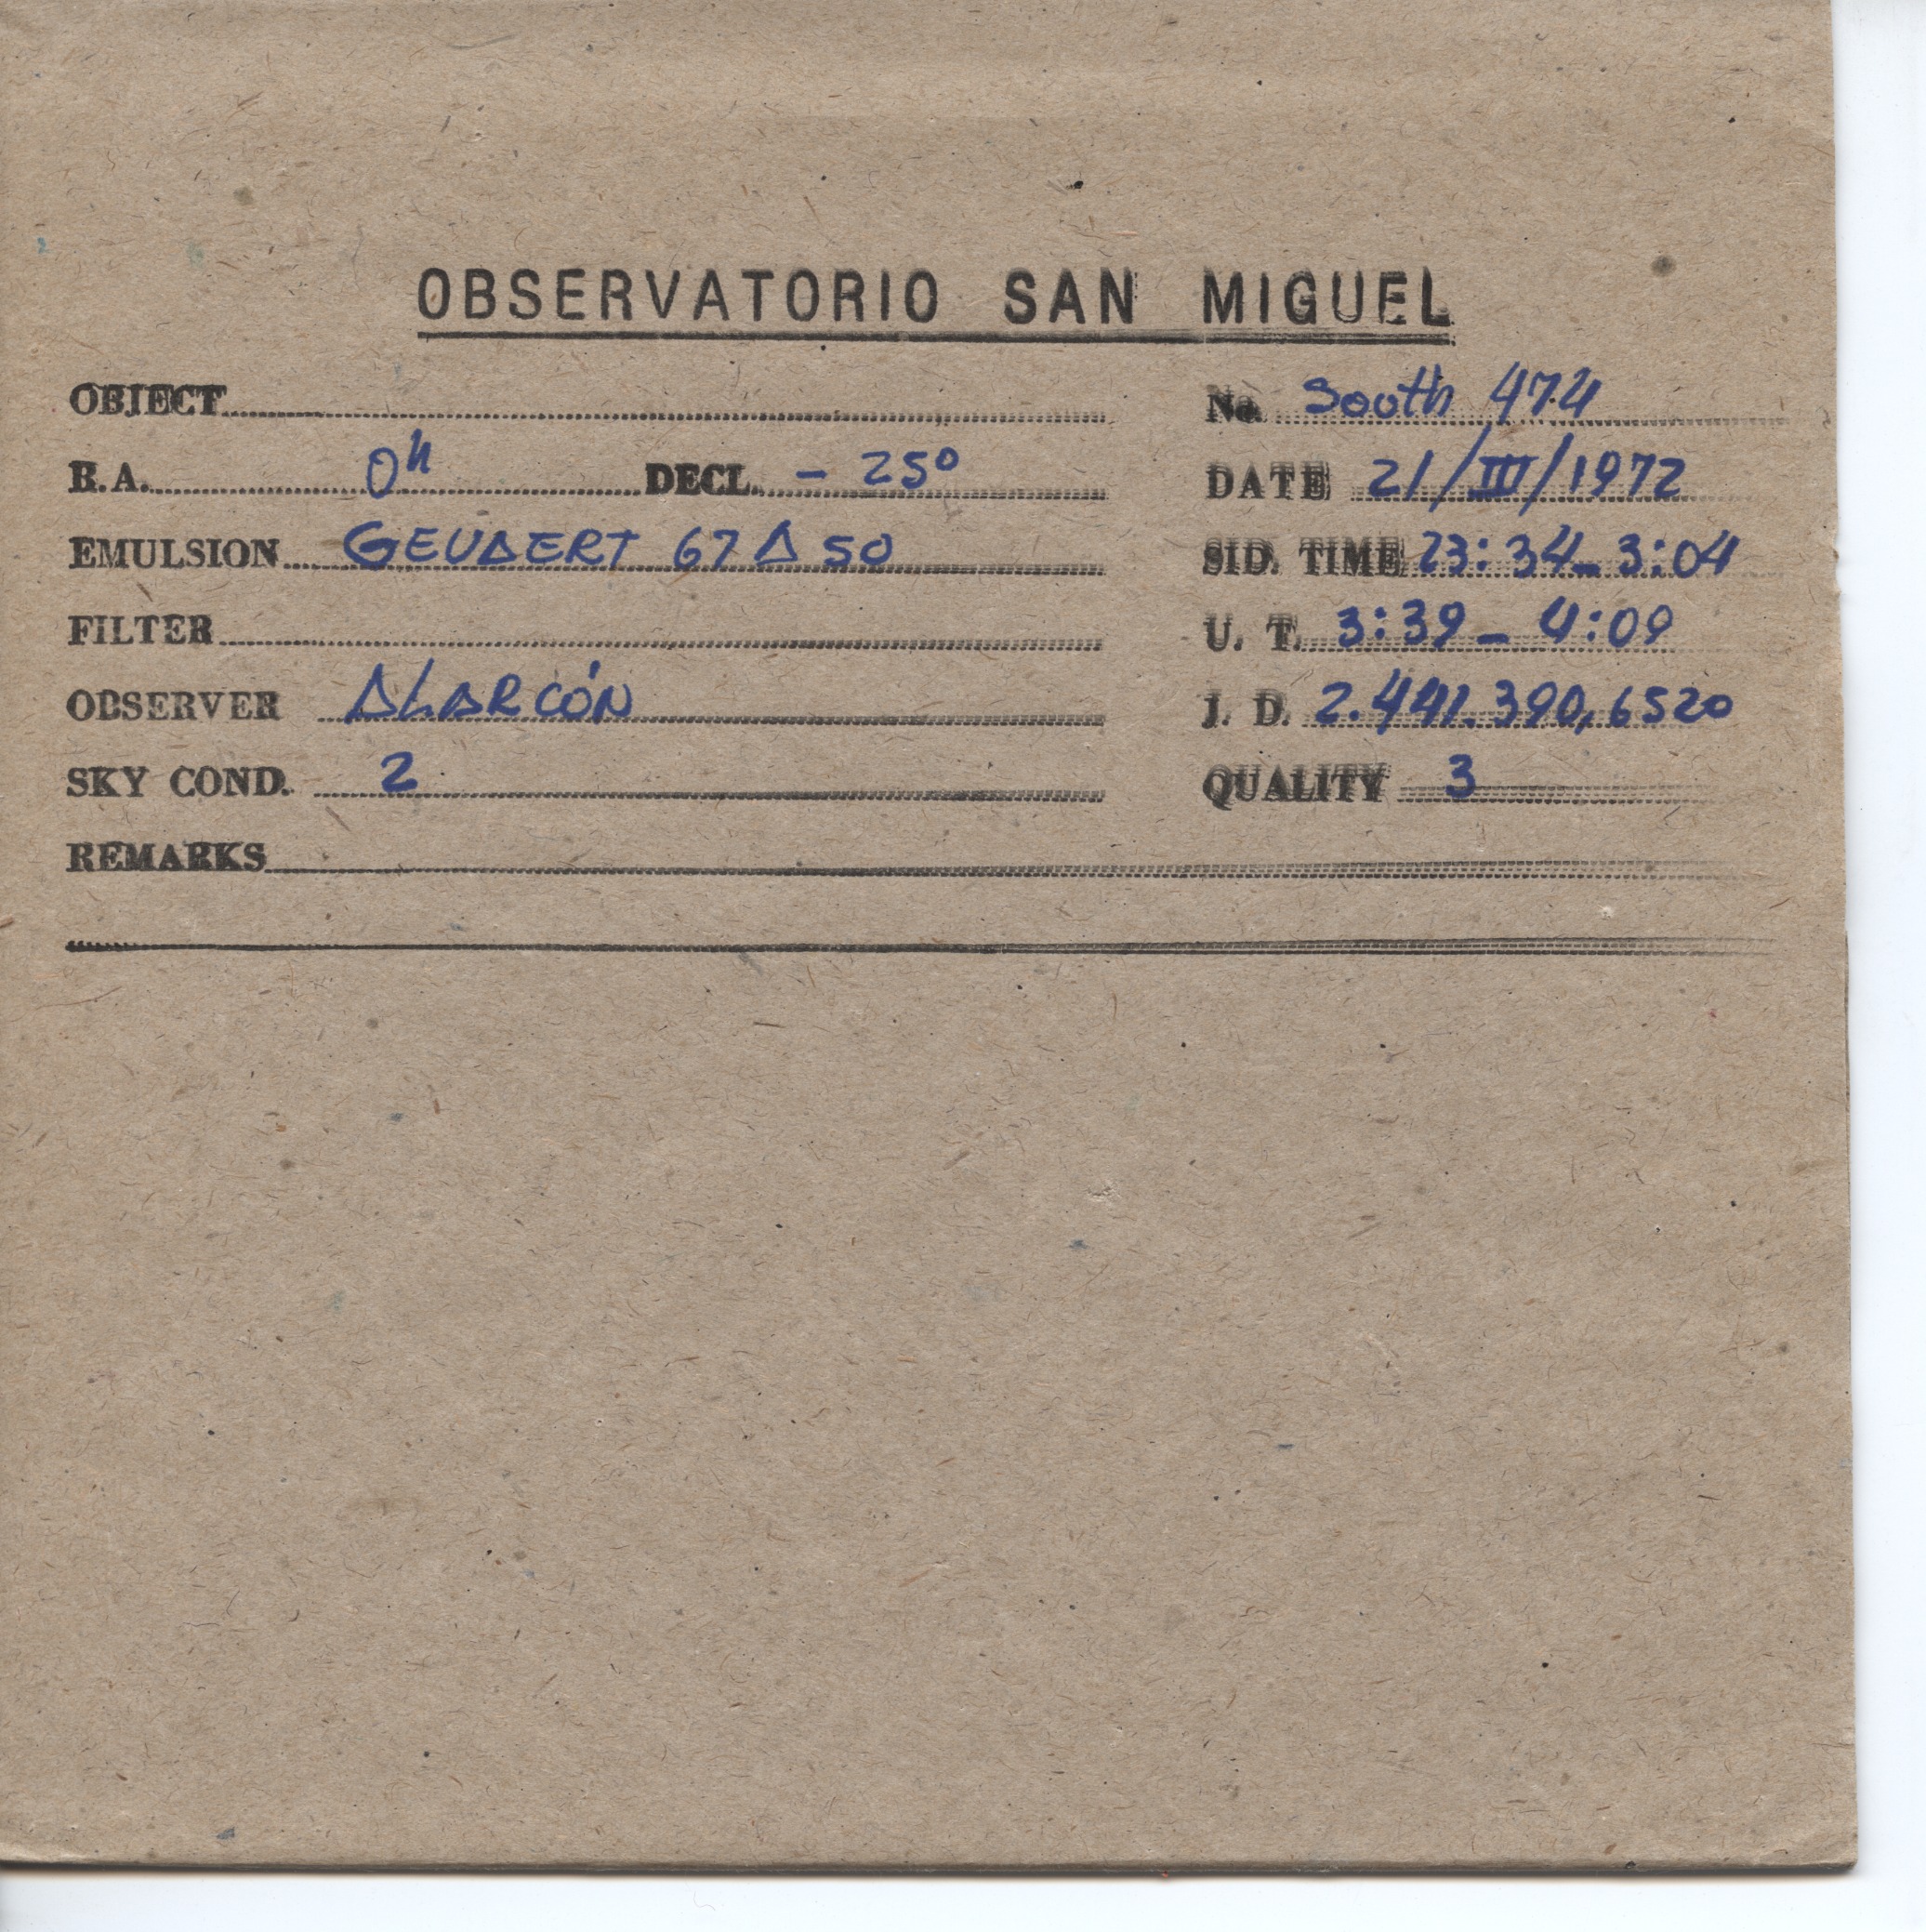 OBSERVATORIO SAN MIGUEL
OBJECT No. South 474
R.A. 0h DECL. - 25° DATE 21/III/1972
EMULSION GEVAERT 67 A 50 SID. TIME 23:34 - 3:04
FILTER U. T. 3:39 - 4:09
OBSERVER ALARCÓN J. D. 2.441.390,6520
SKY COND. 2 QUALITY 3
REMARKS